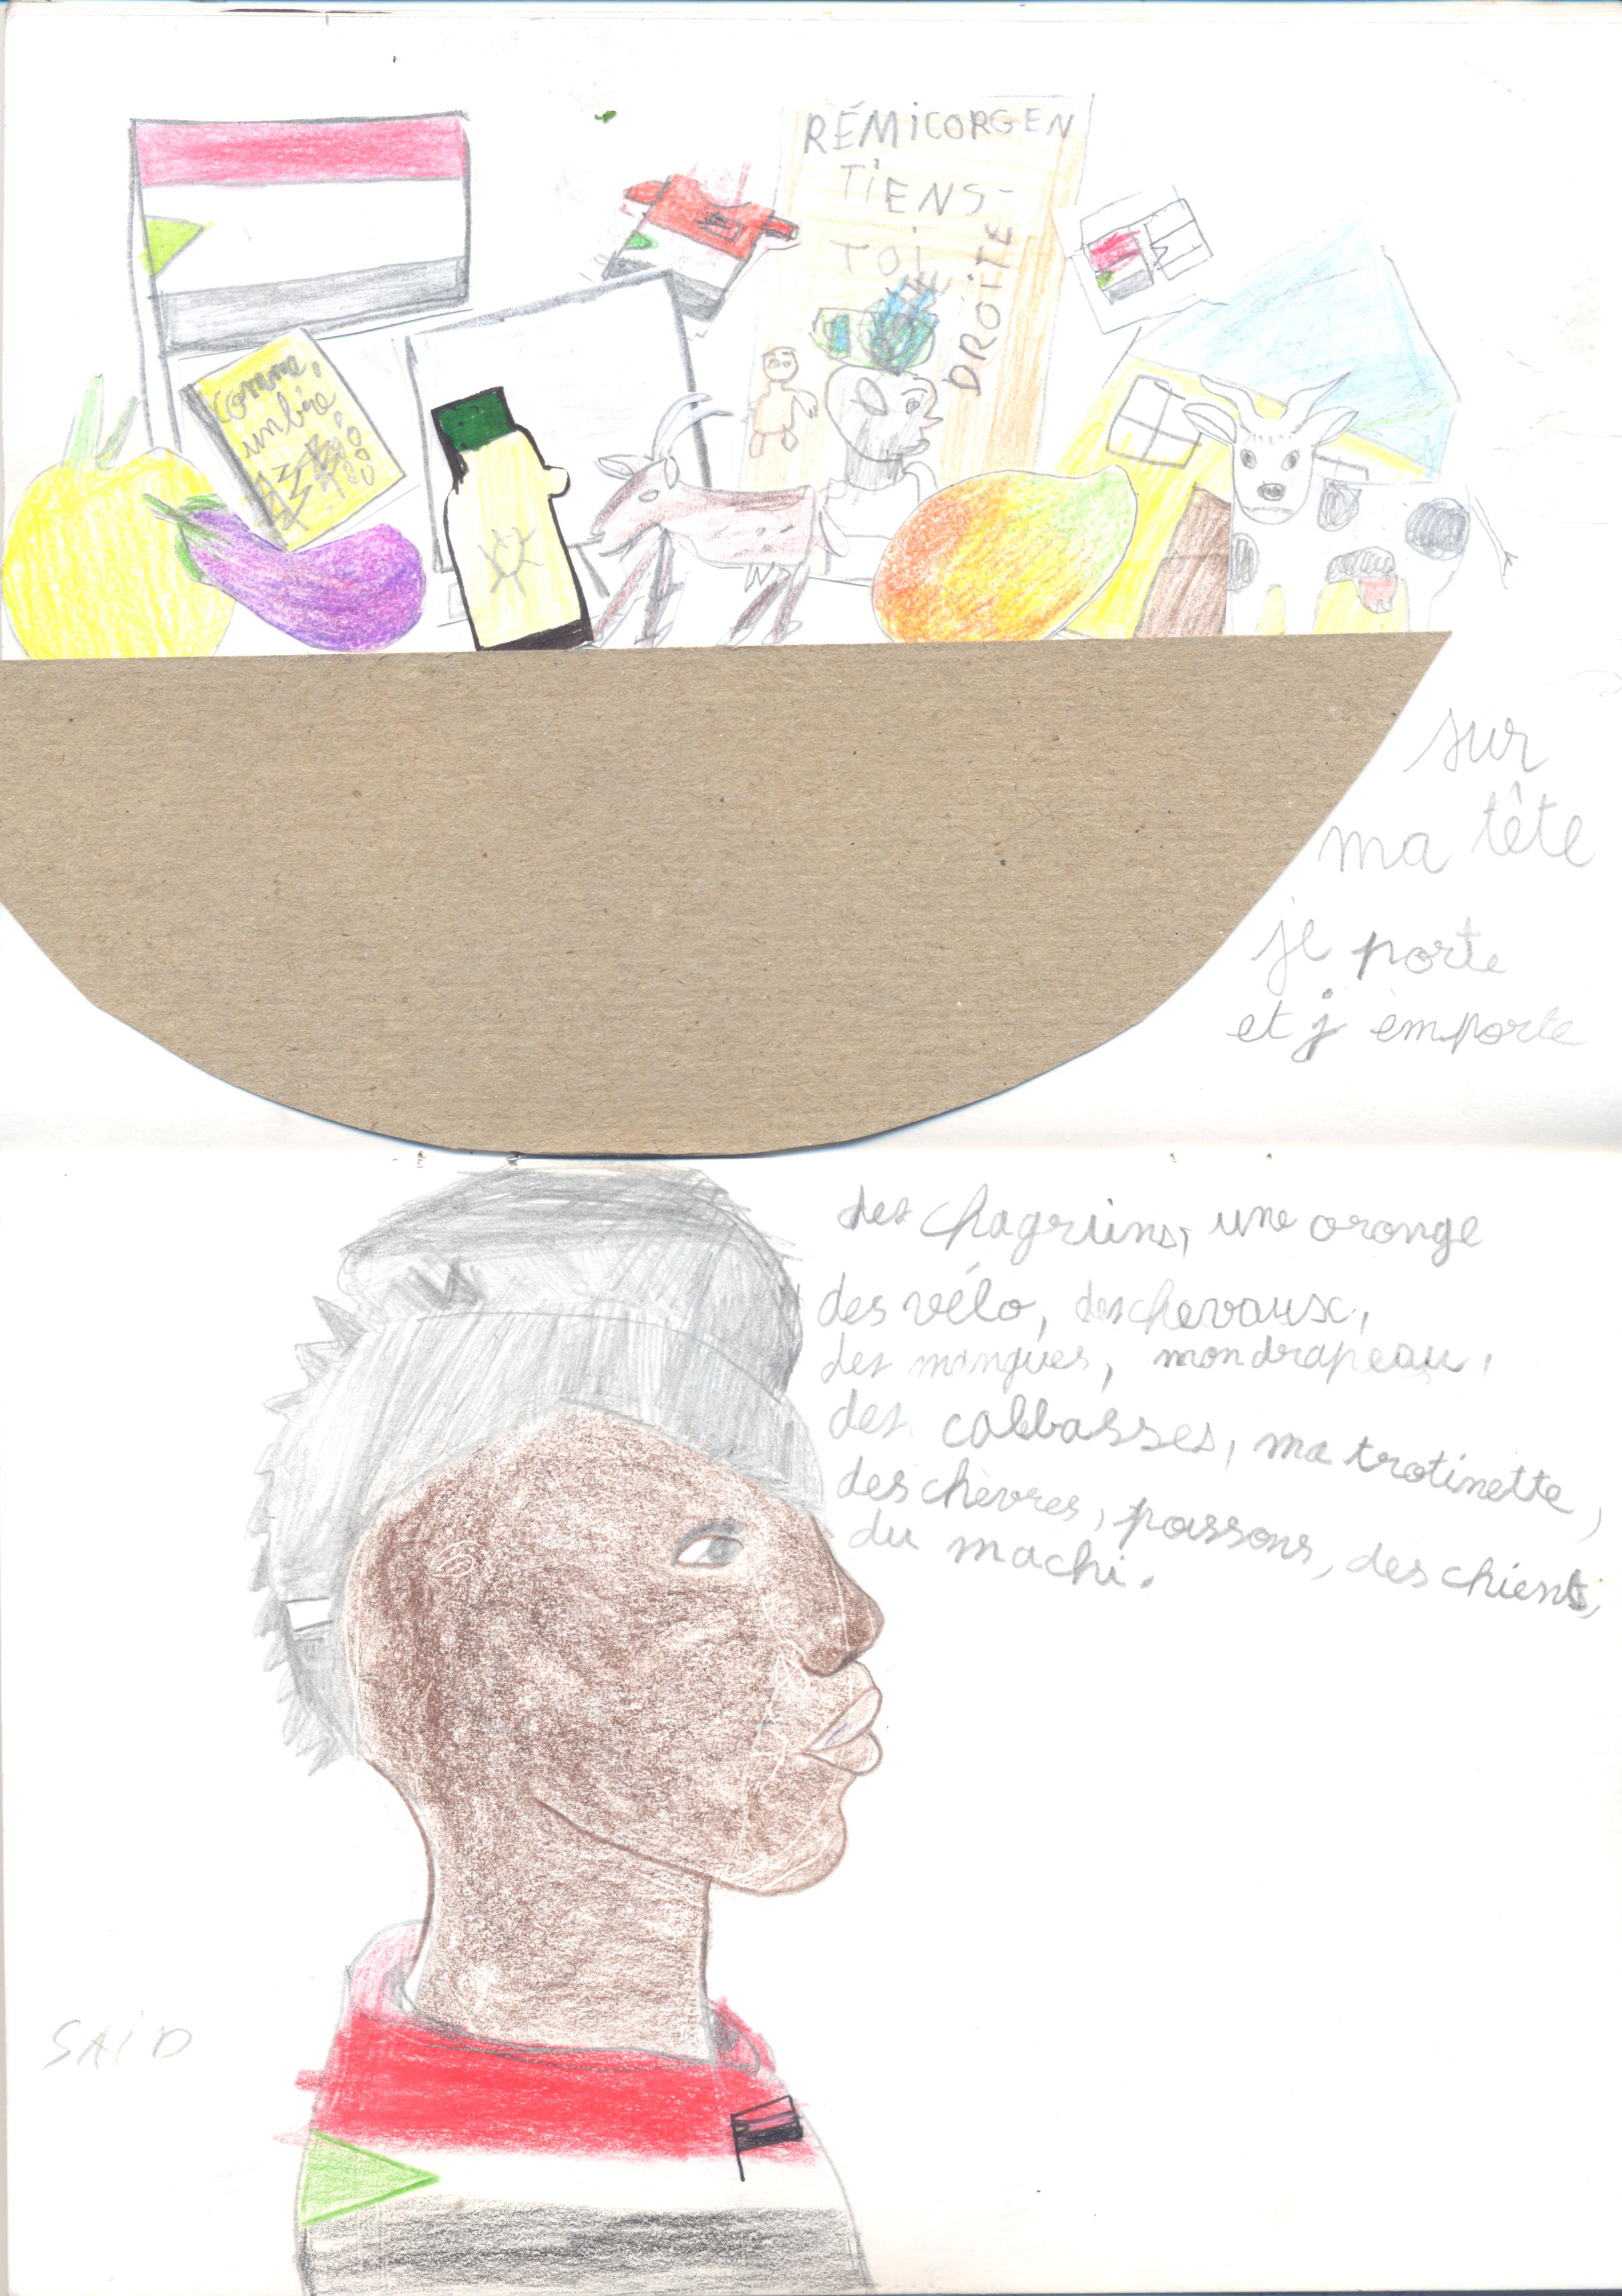 RÉMICORGEN
TIENS-
TOI
DROITE
comme,
un
sur
ma tête
je porte
et j'emporte
des chagrins, une oronge
des vélo, des chevaux,
des mangues, mon drapeau,
des calbasses, ma trotinette,
des chèvres, poissons, des chiens,
du machi.
SAID